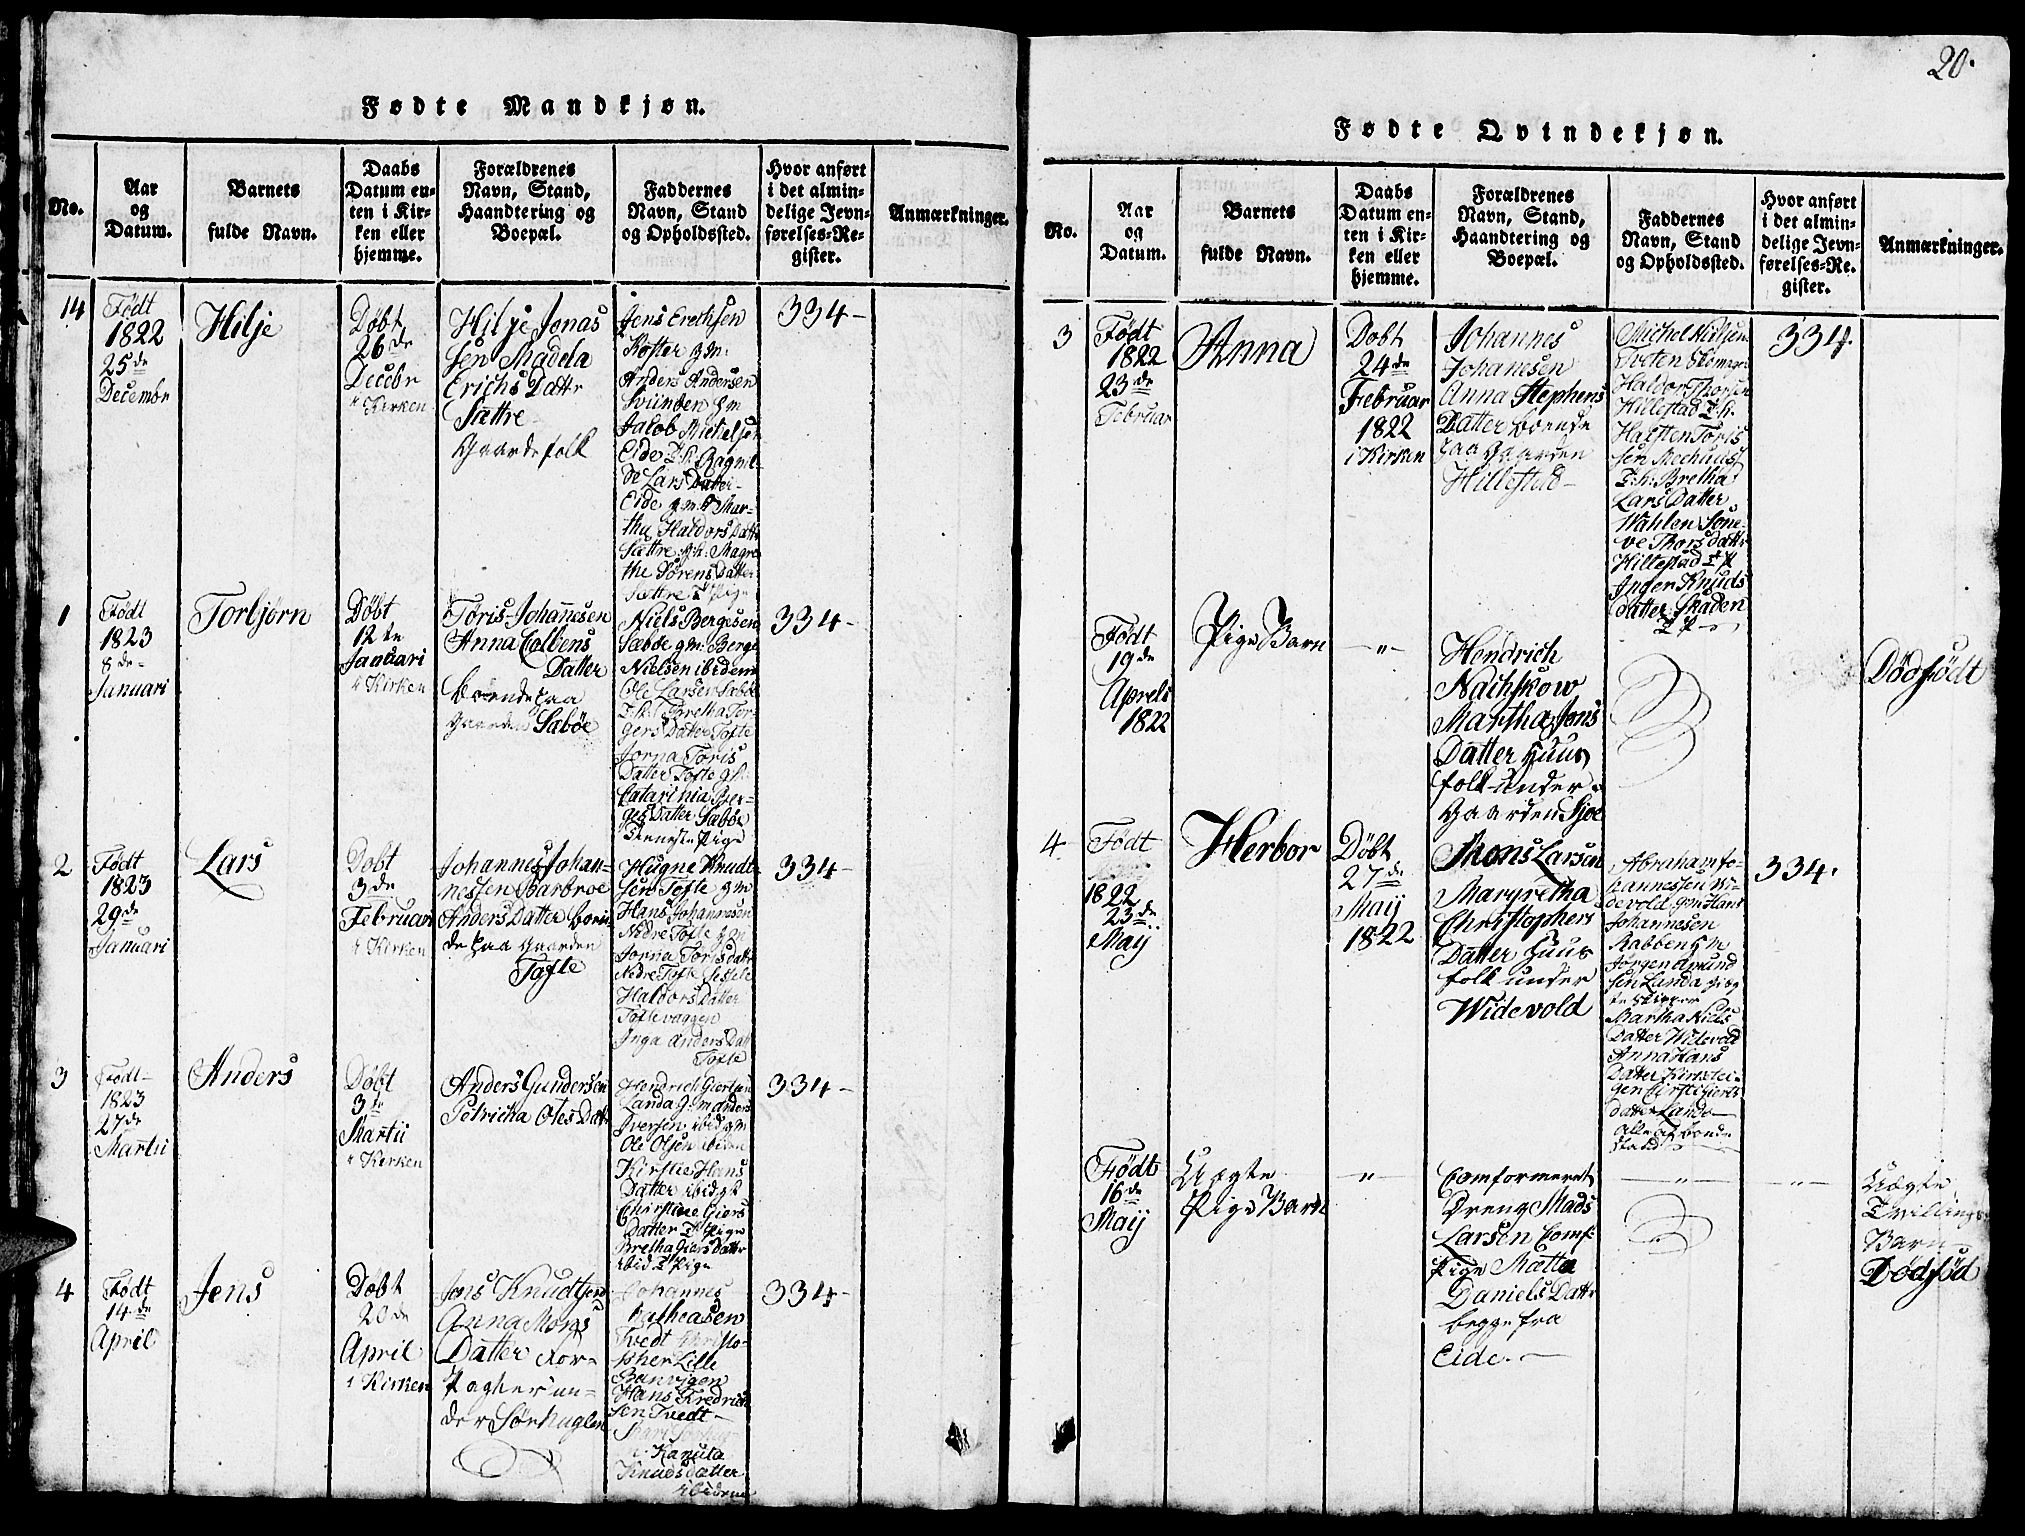 Fødte Mandkjøn.
No.
Aar
og
Datum.
Barnets
fulde Navn.
Daabs
Datum en-
ten i Kir-
ken eller
hjemme.
Forældrenes
Navn, Stand,
Haandtering og
Boepæl.
Faddernes
Navn, Stand
og Opholdssted.
Hvor anført
i det almin-
delige Jevn-
førelses-Re-
gister.
Anmærkninger.
14
Født
1822
25de
Decembr
Hilje
Døbt
26de
Decebr
i Kirken
Hilje Jonas
sen Madela
Erichs Dattr
Sættre
Gaardefolk
Jens Erethsen
Koster gm:
Anders Andersen
Svunden gm
Jakob Mickelsen
Eide T:k: Ragnil-
de Lars Datter
Eide gm: Mar-
the Haldors Dattr
Sættre g.k: Magre
the Sørens Datter
Sættre T Pige
334-
1
Født
1823
8de-
Januari
Torbjørn
Døbt
12te
Januari
i Kirken
Toris Johannesen
Anna Colbens
Datter
boende paa
Gaarden Sabøe
Niels Bergesen
Sæbøe gm: Berge
Nielsen ibidem
Ole Larsen Sabøe
T:k: Toretha Tor-
gers Datter Tofte
Jorna Toris
Datter Tofte gk:
Catarinia Ber-
ges Datter Sæbøe
Tieneste Pige
334-
2
Født
1823
29de
Januari
Lars
Døbt
3de
Februari
i Kirken
Johannes Johan-
nessen Barbroe
Anders Datter boen-
de paa Gaarden
Tofte
Hugne Knudt-
sen Tofte gm
Hans Johannesen
Nedre Tofte gm
Jorna Toris dattr
Nedre Tofte Sissele
Haldors Datter
Toftevaggen
Inga Anders Datt
Tofte
334-
3
Født
1823
27de
Martii
Anders
Døbt
3de
Martii
i Kirken
Anders Gundersen
Petricka Oles Dattr
Hendrich Giertsen
Landa G:m Anders
Iversen ibid gm
Ole Olsen ibidem
Kirstie Hans
Datter ibid gk
Christine Giers
Datter T Pige
Bretha Giers Dattr
ibid T Pige
334-
4
Født
14de
April
Jens
Døbt
20de
April
i Kirken
Jens Knudtsen
Anna Mons
Datter For-
Pagter un-
der Sørhuglen
Johannes
Matheasen
Tvedt Christo-
pher Lille
Banvigen
Hans Fredrich
sen Tvedt
Kanuta
Knudsdatter
ibidem
334-
20.
Fødte Qvindekjøn.
No.
Aar
og
Datum.
Barnets
fulde Navn.
Daabs
Datum en-
ten i Kir-
ken eller
hjemme.
Forældrenes
Navn, Stand,
Haandtering og
Boepæl.
Faddernes
Navn, Stand
og Opholdssted.
Hvor anført
i det almin-
delige Jevn-
førelses-Re-
gister.
Anmærkninger.
3
Født
1822
23de
Februar
Anna
Døbt
24de
Februar
1822
i Kirken
Johannes
Johannesen
Anna Stephens
Datter boende
paa Gaarden
Hillestad-
Michel Nielsen
Tveten Skomager
Haldor Thorsen
Hillestad T.k:
Halsten Toris
sen Mechuus
T:k: Bretha
Lars Datter
Wahlen Søne-
ve Thors dattr
Hillestad T P
Inger Knuds
datter Skaden
T P
334.
Født
19de
Aprels
1822
Pige Barn
-"-
Hendrich
Nachskow
Martha Jens
Datter Huus
folk under
Gaarden Sjoe
Dødfødt
4
Født
1822
23de
Maij
Herbor
Døbt
27de
Maij
1822
Mons Larsen
Margretha
Christophers
Datter Huus
folk under
Widevold
Abraham Jo-
hannessen Wi-
devold gm Hans
Johannesen
Rabben gm
Jørgen Amund
sen Landa
Martha Niels
Datter Widevold
Anna Hans
Datter Kirkstei-
gen Cirsti Gierts
datter Landa
alle af bonde
Stand
334.
Født
16de
Maij
Uægte
Pige Barn
-"-
Comformeret
Dreng Mads
Larsen Comf:
Pige Mætta
Daniels Dattr
begge fra
Eide.-
-"-
-"-
Uægte
Tvillings
Barn
Dødfød